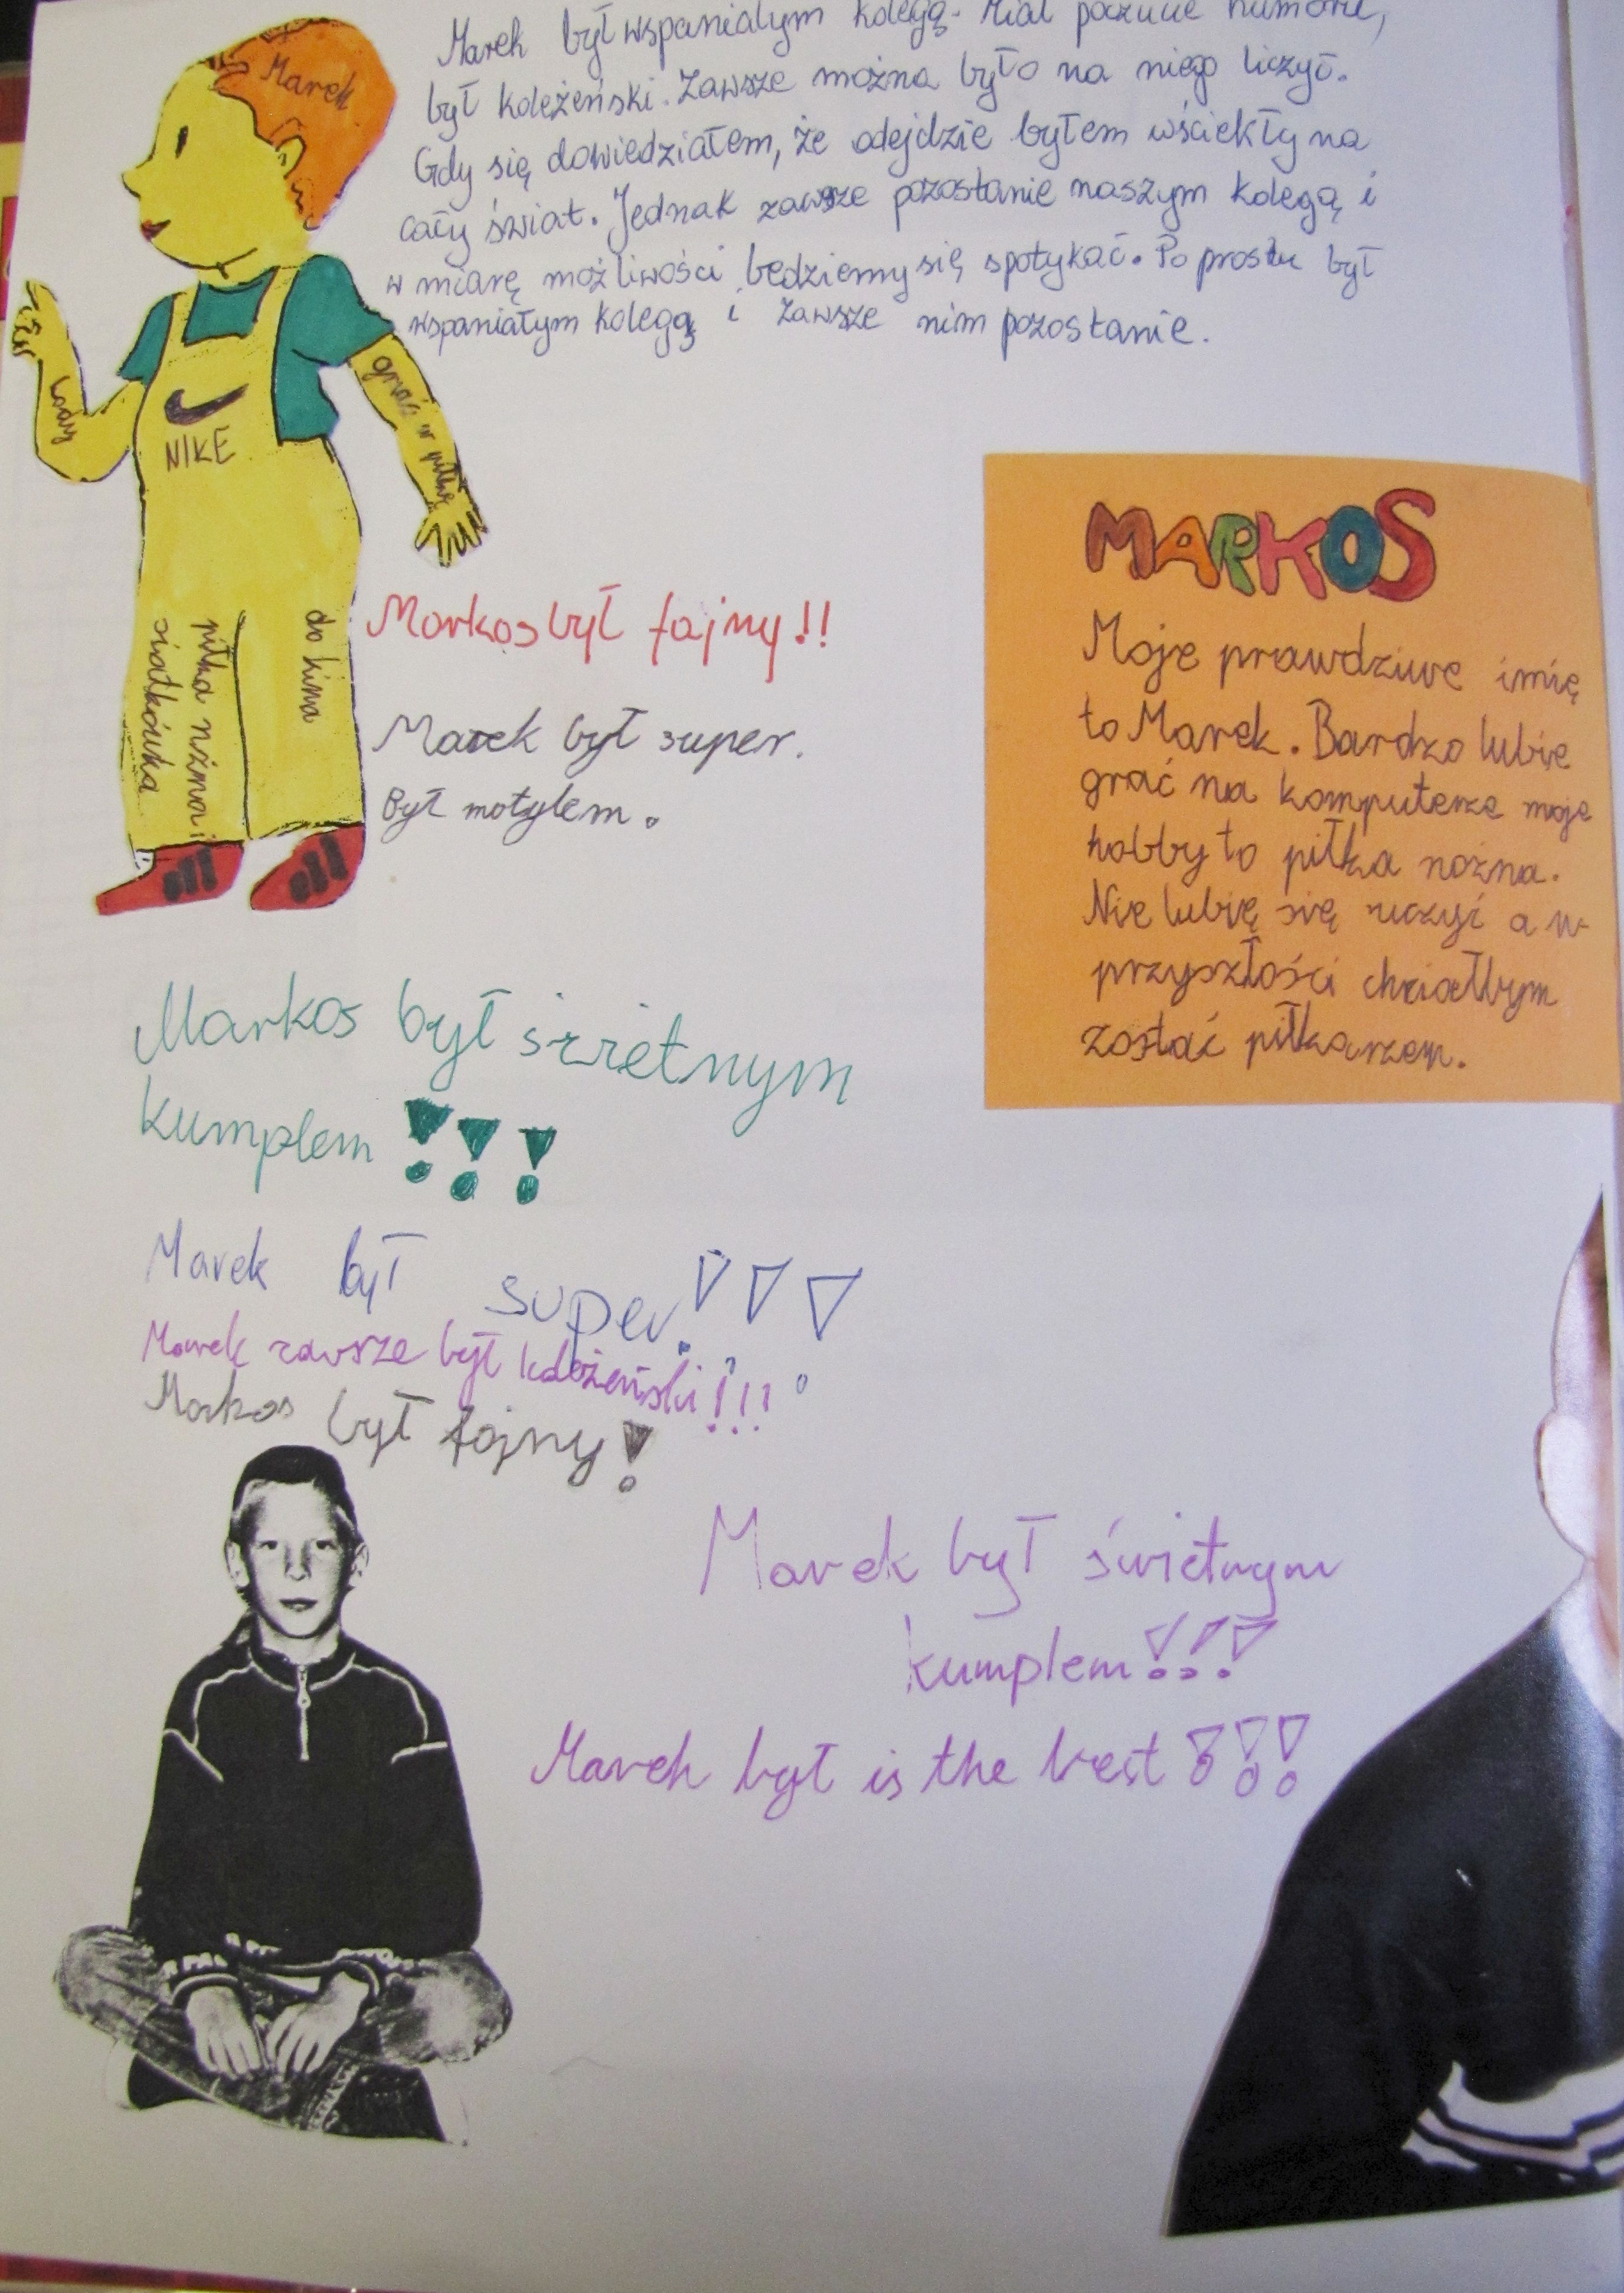 Marek był wspaniałym kolegą. Miał poczucie humoru,
był koleżeński. Zawsze można było na niego liczyć.
Gdy się dowiedziałem, że odejdzie byłem wściekły na
cały świat. Jednak zawsze pozostanie naszym kolegą i
w miarę możliwości będziemy się spotykać. Po prostu był
wspaniałym kolegą i zawsze nim pozostanie.
Marek
lody
NIKE
grać w piłkę
do kina
piłka nożna i
siatkówka
Markos był fajny!!
Marek był super.
Był motylem.
MARKOS
Moje prawdziwe imię
to Marek. Bardzo lubię
grać na komputerze moje
hobby to piłka nożna.
Nie lubię się uczyć a w
przyszłości chciałbym
zostać piłkarzem.
Markos był świetnym
kumplem!!!
Marek był super!!!
Marek zawsze był koleżeński!!!
Markos był fajny!
Marek był świetnym
kumplem!!!
Marek był is the best!!!